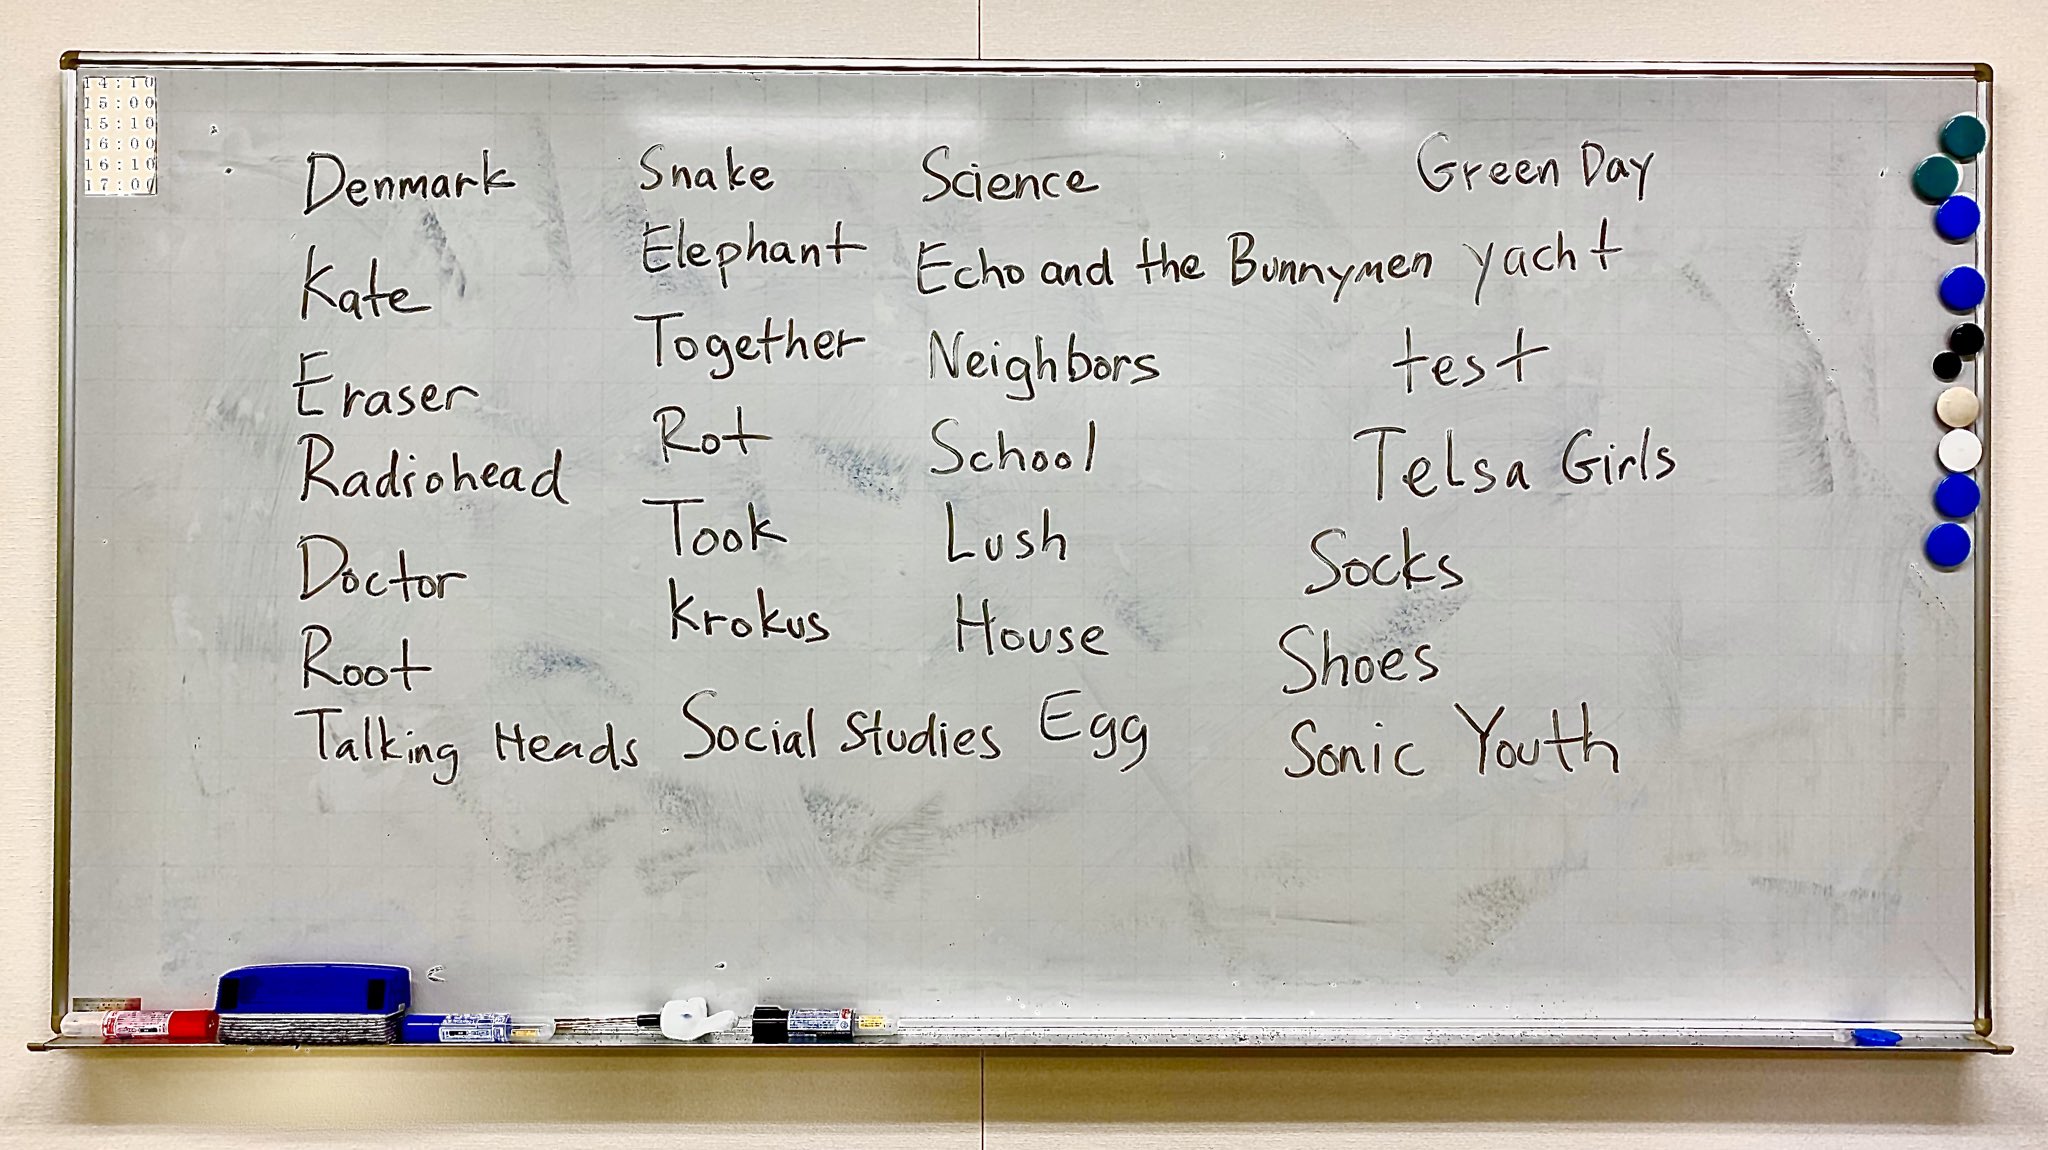 14:10
15:00
15:10
16:00
16:10
17:00
Denmark
Kate
Eraser
Radiohead
Doctor
Root
Talking Heads
Snake
Elephant
Together
Rot
Took
Krokus
Social Studies
Science
Echo and the Bunnymen
Neighbors
School
Lush
House
Egg
Green Day
yacht
test
Telsa Girls
Socks
Shoes
Sonic Youth